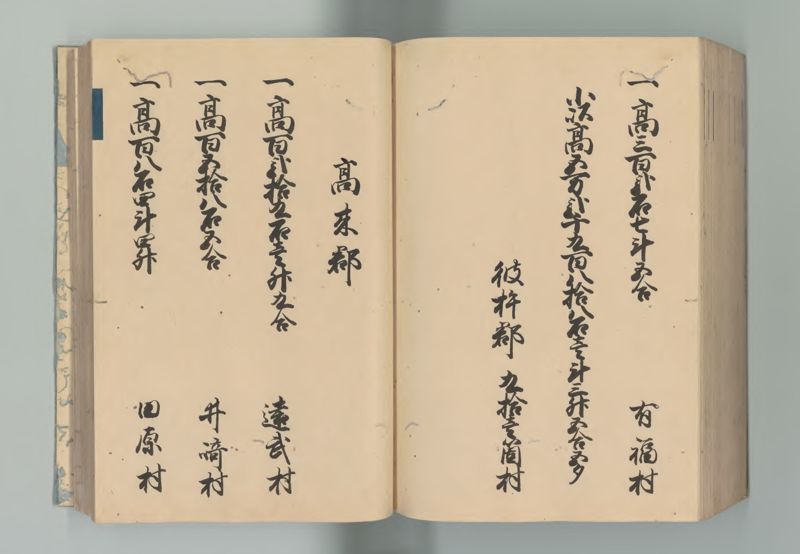 一高三百弐石七斗五合 有福村
小以高五万弐千九百八拾八石壱斗三升五合五夕
彼杵郡 九拾壱箇村
高来郡
一高百弐拾五石壱升九合 遠武村
一高百五拾八石五合 井﨑村
一高百八石四斗四升 田原村